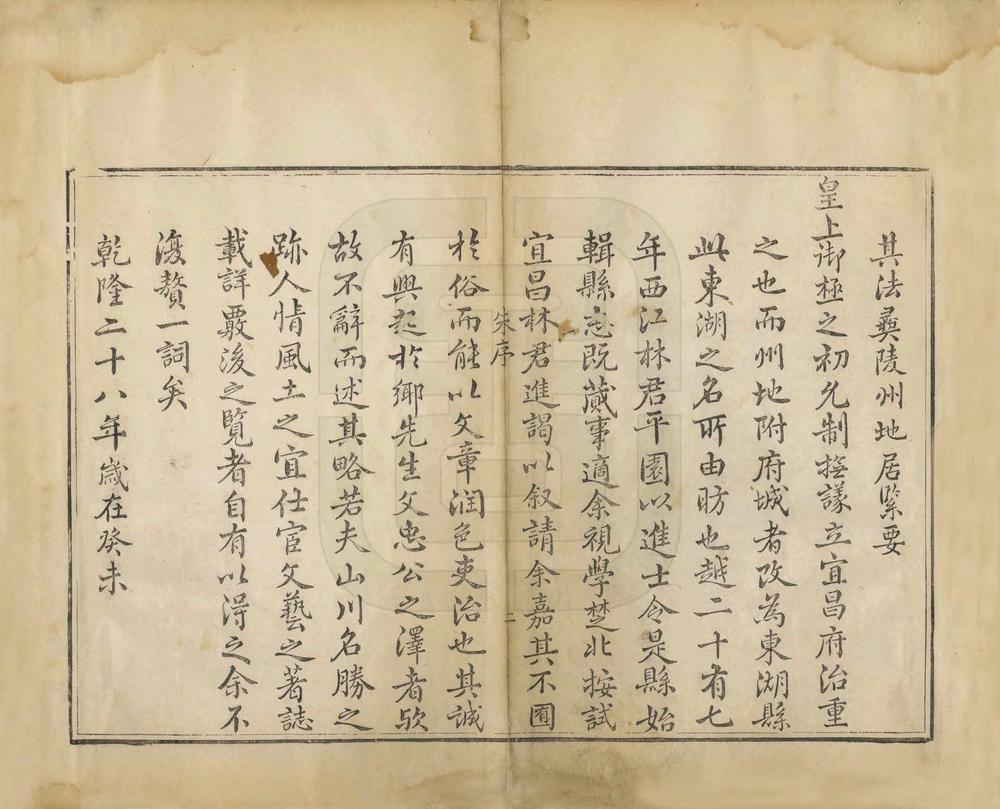 其法彛陵州地居緊要
皇上御極之初允制撫議立宜昌府治重
之也而州地附府城者改為東湖縣
此東湖之名所由昉也越二十有七
年西江林君平園以進士令是縣始
輯縣志既蕆事適余視學楚北按試
宜昌林君進謁以叙請余嘉其不囿
朱序
二
於俗而能以文章潤色吏治也其誠
有興起於鄉先生文忠公之澤者歟
故不辭而述其略若夫山川名勝之
跡人情風土之宜仕宦文藝之著誌
載詳覈後之覽者自有以得之余不
復贅一詞矣
乾隆二十八年歲在癸未